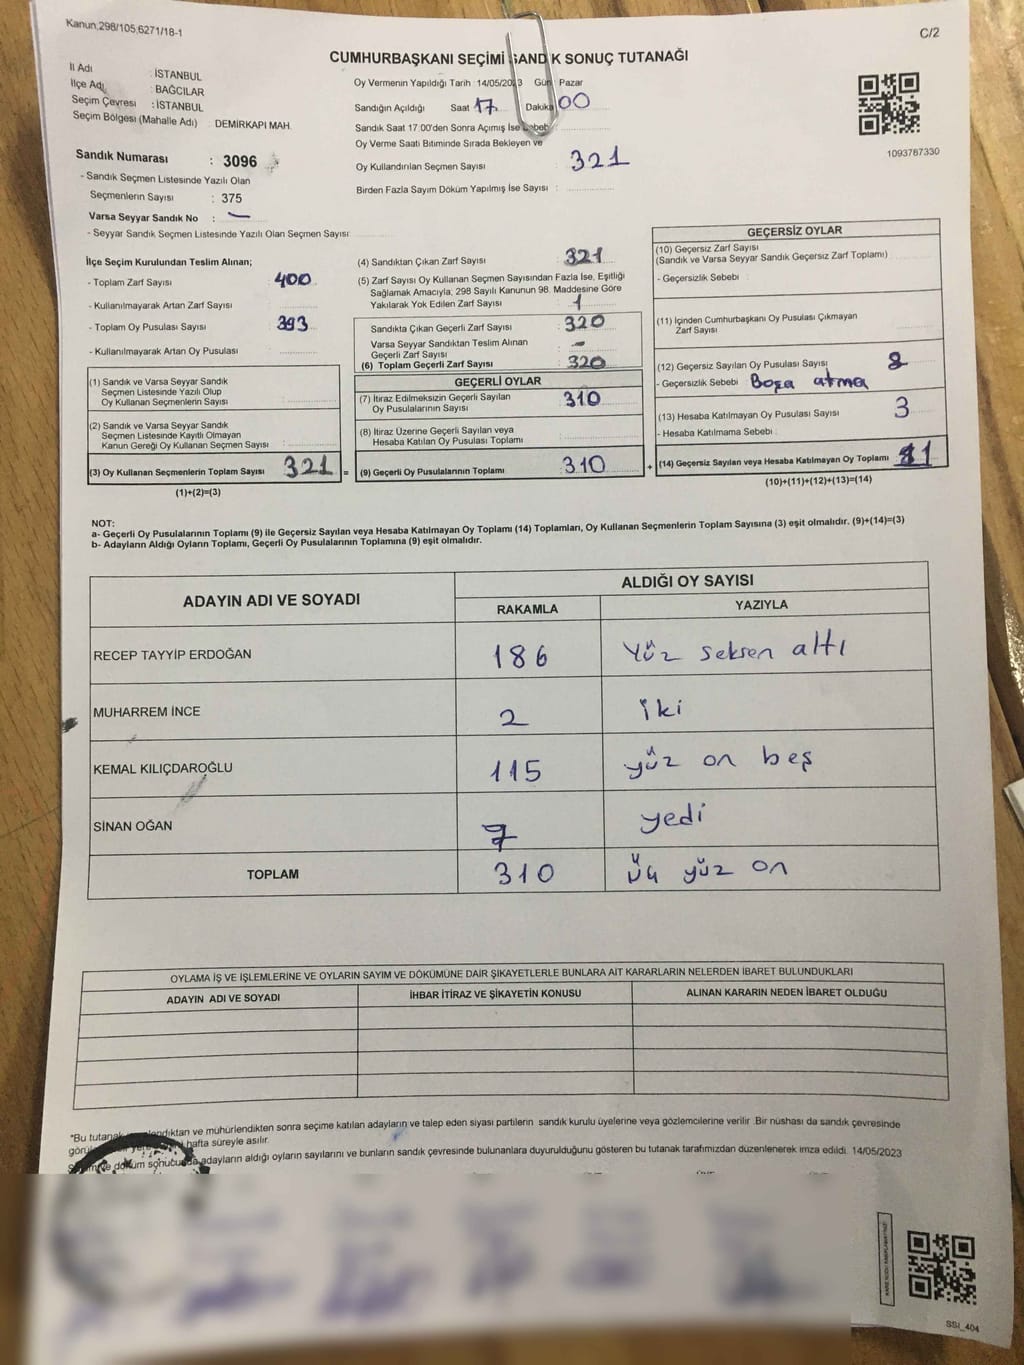 Kanun;298/105,6271/18-1
C/2
CUMHURBAŞKANI SEÇİMİ SANDIK SONUÇ TUTANAĞI
İl Adı : İSTANBUL
İlçe Adı : BAĞCILAR
Seçim Çevresi : İSTANBUL
Seçim Bölgesi (Mahalle Adı) DEMİRKAPI MAH.
Sandık Numarası : 3096
- Sandık Seçmen Listesinde Yazılı Olan
Seçmenlerin Sayısı : 375
Varsa Seyyar Sandık No : -
- Seyyar Sandık Seçmen Listesinde Yazılı Olan Seçmen Sayısı:
Oy Vermenin Yapıldığı Tarih :14/05/2023 Gün: Pazar
Sandığın Açıldığı Saat 17 Dakika 00
Sandık Saat 17:00'den Sonra Açımış İse Sebebi
Oy Verme Saati Bitiminde Sırada Bekleyen ve
Oy Kullandırılan Seçmen Sayısı : 321
Birden Fazla Sayım Döküm Yapılmış İse Sayısı :
1093767330
İlçe Seçim Kurulundan Teslim Alınan;
- Toplam Zarf Sayısı : 400
- Kullanılmayarak Artan Zarf Sayısı :
- Toplam Oy Pusulası Sayısı : 393
- Kullanılmayarak Artan Oy Pusulası :
(1) Sandık ve Varsa Seyyar Sandık
Seçmen Listesinde Yazılı Olup
Oy Kullanan Seçmenlerin Sayısı :
(2) Sandık ve Varsa Seyyar Sandık
Seçmen Listesinde Kayıtlı Olmayan
Kanun Gereği Oy Kullanan Seçmen Sayısı :
(3) Oy Kullanan Seçmenlerin Toplam Sayısı : 321 =
(1)+(2)=(3)
(4) Sandıktan Çıkan Zarf Sayısı : 321
(5) Zarf Sayısı Oy Kullanan Seçmen Sayısından Fazla İse, Eşitliği
Sağlamak Amacıyla; 298 Sayılı Kanunun 98. Maddesine Göre
Yakılarak Yok Edilen Zarf Sayısı : 1
Sandıkta Çıkan Geçerli Zarf Sayısı : 320
Varsa Seyyar Sandıktan Teslim Alınan
Geçerli Zarf Sayısı : -
(6) Toplam Geçerli Zarf Sayısı : 320
GEÇERLİ OYLAR
(7) İtiraz Edilmeksizin Geçerli Sayılan
Oy Pusulalarının Sayısı : 310
(8) İtiraz Üzerine Geçerli Sayılan veya
Hesaba Katılan Oy Pusulası Toplamı :
(9) Geçerli Oy Pusulalarının Toplamı : 310 +
GEÇERSİZ OYLAR
(10) Geçersiz Zarf Sayısı
(Sandık ve Varsa Seyyar Sandık Geçersiz Zarf Toplamı)
- Geçersizlik Sebebi :
(11) İçinden Cumhurbaşkanı Oy Pusulası Çıkmayan
Zarf Sayısı
(12) Geçersiz Sayılan Oy Pusulası Sayısı : 8
- Geçersizlik Sebebi : Boşa atma
(13) Hesaba Katılmayan Oy Pusulası Sayısı : 3
- Hesaba Katılmama Sebebi :
(14) Geçersiz Sayılan veya Hesaba Katılmayan Oy Toplamı : 11
(10)+(11)+(12)+(13)=(14)
NOT:
a- Geçerli Oy Pusulalarının Toplamı (9) ile Geçersiz Sayılan veya Hesaba Katılmayan Oy Toplamı (14) Toplamları, Oy Kullanan Seçmenlerin Toplam Sayısına (3) eşit olmalıdır. (9)+(14)=(3)
b- Adayların Aldığı Oyların Toplamı, Geçerli Oy Pusulalarının Toplamına (9) eşit olmalıdır.
ADAYIN ADI VE SOYADI ALDIĞI OY SAYISI
RAKAMLA YAZIYLA
RECEP TAYYİP ERDOĞAN 186 Yüz seksen altı
MUHARREM İNCE 2 iki
KEMAL KILIÇDAROĞLU 115 yüz on beş
SİNAN OĞAN 7 yedi
TOPLAM 310 üç yüz on
OYLAMA İŞ VE İŞLEMLERİNE VE OYLARIN SAYIM VE DÖKÜMÜNE DAİR ŞİKAYETLERLE BUNLARA AİT KARARLARIN NELERDEN İBARET BULUNDUKLARI
ADAYIN ADI VE SOYADI İHBAR İTİRAZ VE ŞİKAYETİN KONUSU ALINAN KARARIN NEDEN İBARET OLDUĞU
*Bu tutanak ve mühürlendikten sonra seçime katılan adayların ve talep eden siyasi partilerin sandık kurulu üyelerine veya gözlemcilerine verilir. Bir nüshası da sandık çevresinde
hafta süreyle asılır.
döküm sonucunda adayların aldığı oyların sayılarını ve bunların sandık çevresinde bulunanlara duyurulduğunu gösteren bu tutanak tarafımızdan düzenlenerek imza edildi. 14/05/2023
SSI_404